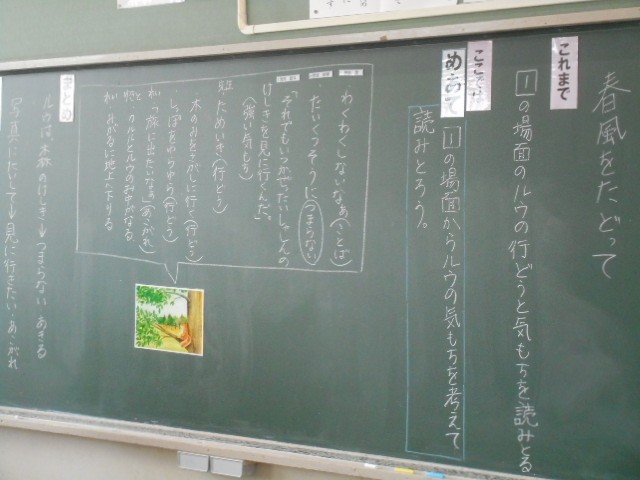 春風をたどって
これまで
1の場面のルウの行どうと気もちを読みとる
ここでは
めあて
1の場面からルウの気もちを考えて
読みとろう。
わくわくしないなぁ(ことば)
たいくつそうに つまらない
「それでもいつかぜったい
けしきを見に行くんだ。」
(強い気もち)
ためいき(行どう)
木のみをさがしに行く(行どう)
しっぽをゆらゆら(行どう)
「旅に出たいなぁ」(あこがれ)
地上へ下りる
まとめ
ルウは、森のけしき→つまらない あきる
写真にたいして→見に行きたい・あこがれ